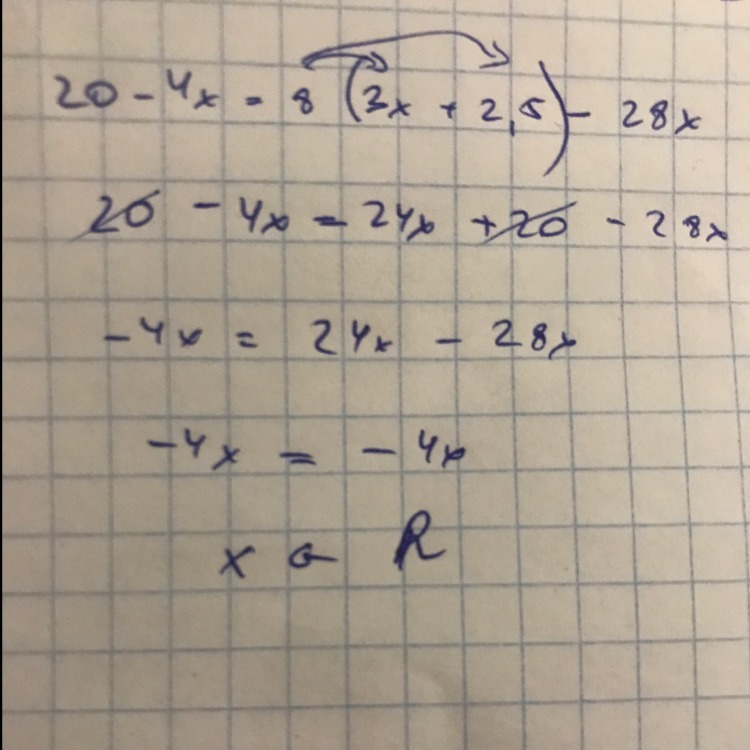 20 - 4x = 8 (3x + 2,5) - 28x
20 - 4x = 24x + 20 - 28x
-4x = 24x - 28x
-4x = -4x
x ∈ R